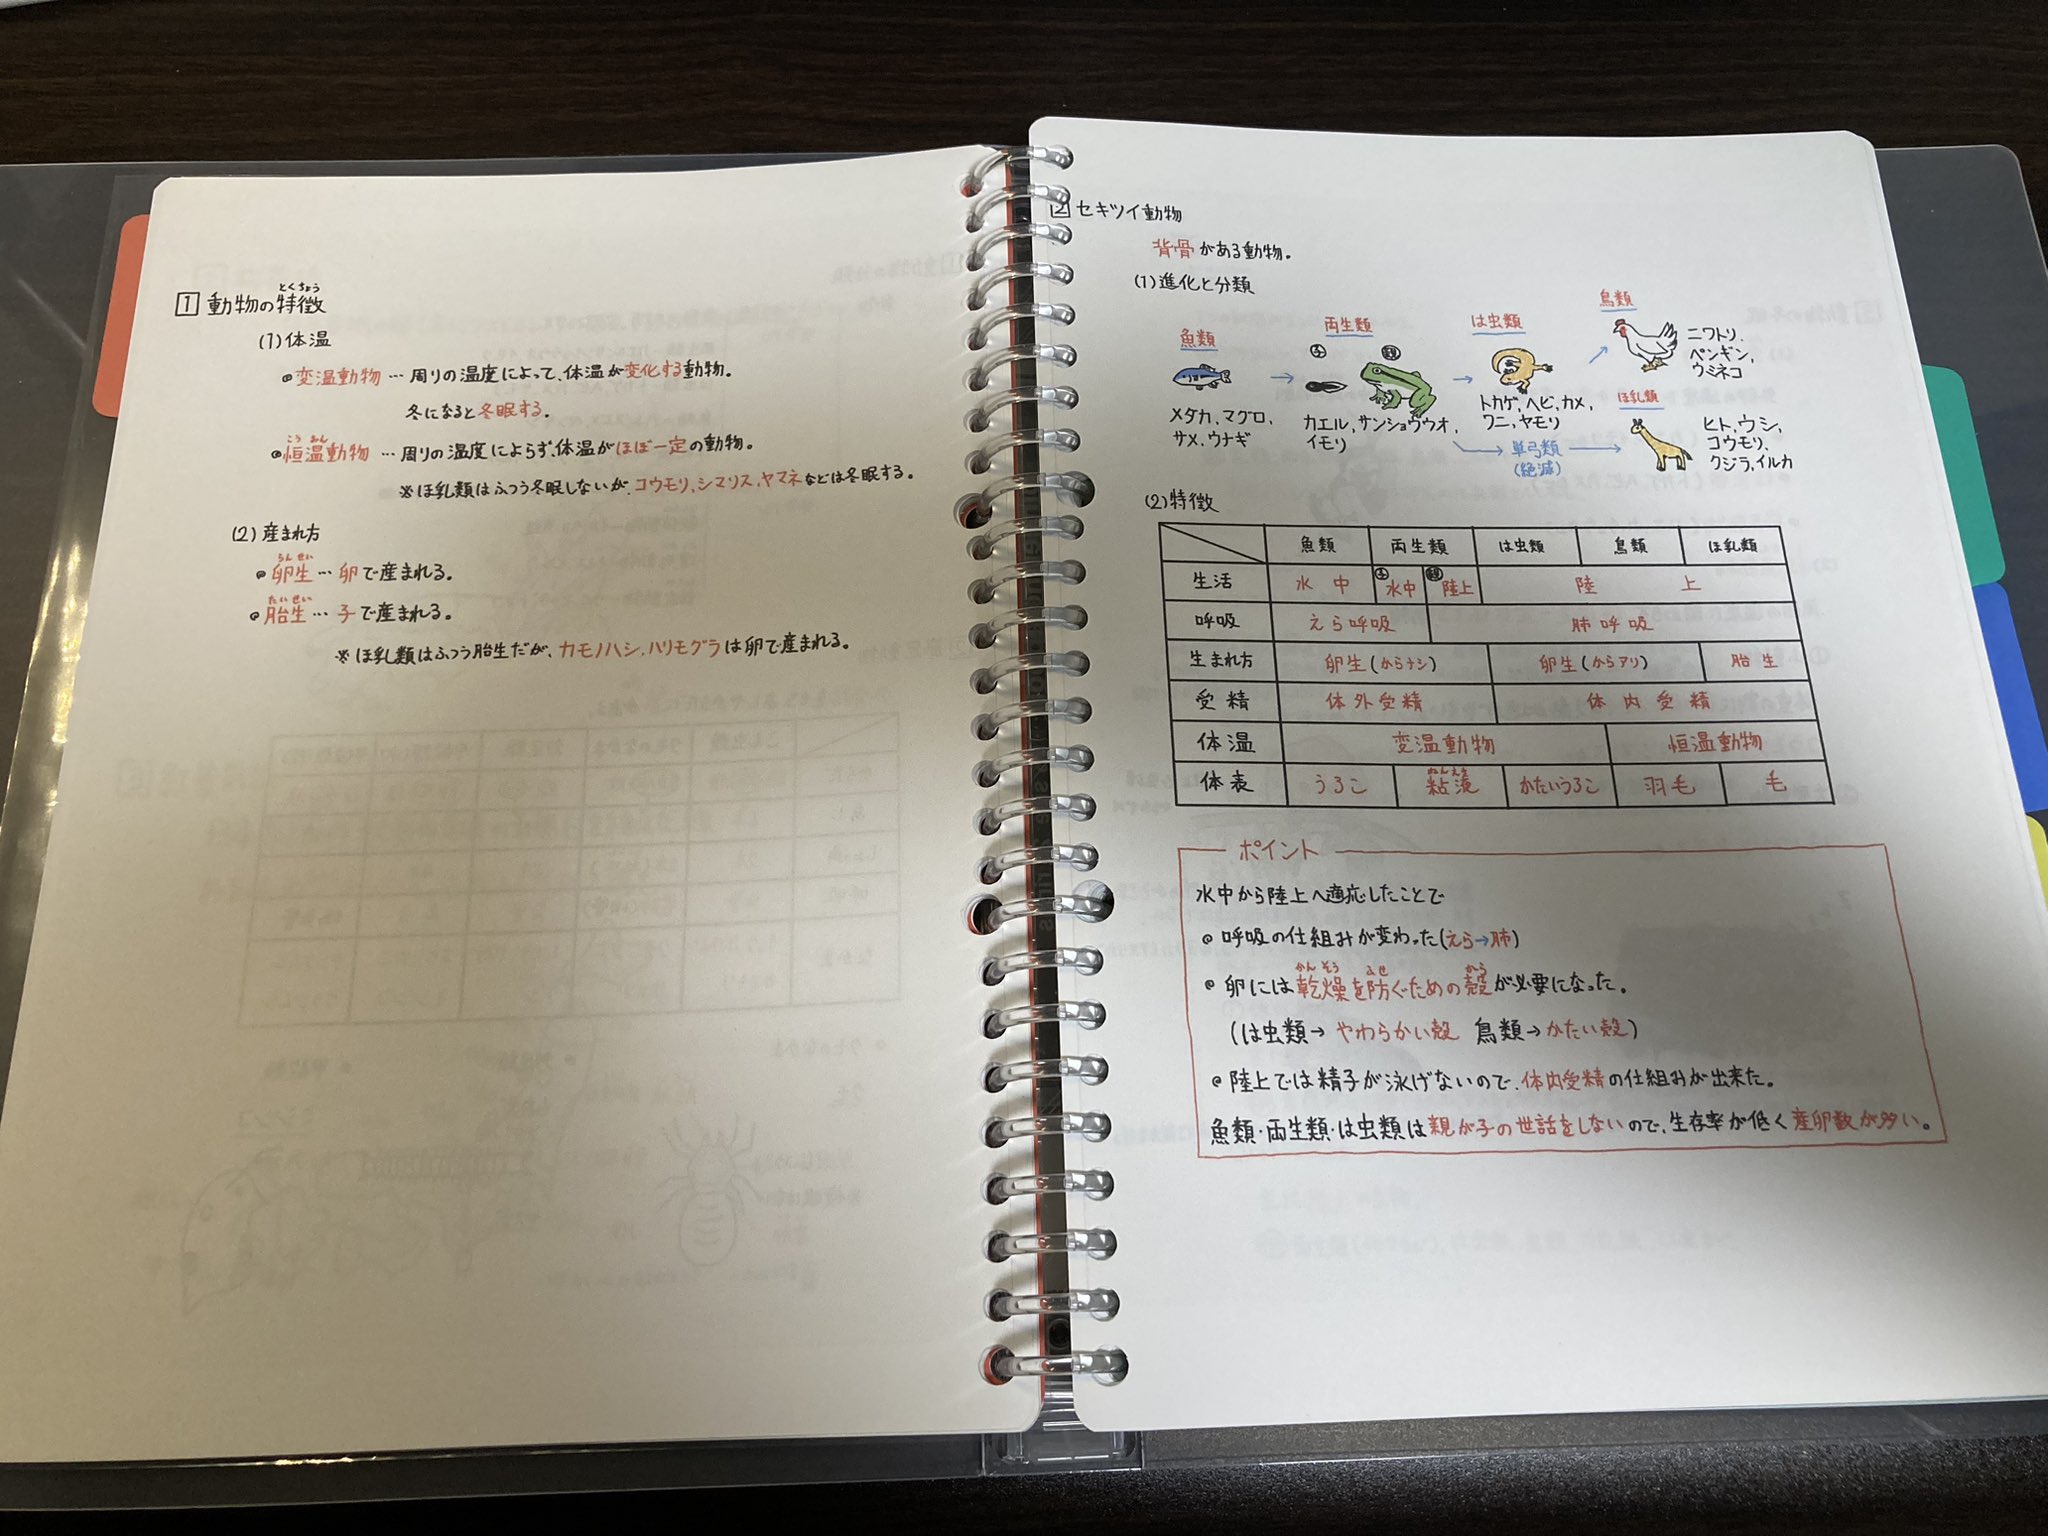 1 動物の特徴
とくちょう
(1)体温
変温動物…周りの温度によって、体温が変化する動物。
冬になると冬眠する。
こうおん
恒温動物…周りの温度によらず、体温がほぼ一定の動物。
※ほ乳類はふつう冬眠しないが、コウモリ,シマリス,ヤマネなどは冬眠する。
(2)産まれ方
らんせい
卵生…卵で産まれる。
たいせい
胎生…子で産まれる。
※ほ乳類はふつう胎生だが、カモノハシ,ハリモグラは卵で産まれる。
2 セキツイ動物
背骨がある動物。
(1)進化と分類
魚類
メダカ,マグロ,
サメ,ウナギ
両生類
子 親
カエル,サンショウウオ,
イモリ
は虫類
トカゲ,ヘビ,カメ,
ワニ,ヤモリ
鳥類
ニワトリ,
ペンギン,
ウミネコ
単弓類
(絶滅)
ほ乳類
ヒト,ウシ,
コウモリ,
クジラ,イルカ
(2)特徴
魚類 両生類 は虫類 鳥類 ほ乳類
生活 水中 子 水中 親 陸上 陸上
呼吸 えら呼吸 肺呼吸
生まれ方 卵生(からナシ) 卵生(からアリ) 胎生
受精 体外受精 体内受精
体温 変温動物 恒温動物
ねんえき
体表 うろこ 粘液 かたいうろこ 羽毛 毛
ポイント
水中から陸上へ適応したことで
呼吸の仕組みが変わった(えら→肺)
かんそう ふせ から
卵には乾燥を防ぐための殻が必要になった。
(は虫類→やわらかい殻 鳥類→かたい殻)
陸上では精子が泳げないので、体内受精の仕組みが出来た。
魚類・両生類・は虫類は親が子の世話をしないので、生存率が低く産卵数が多い。